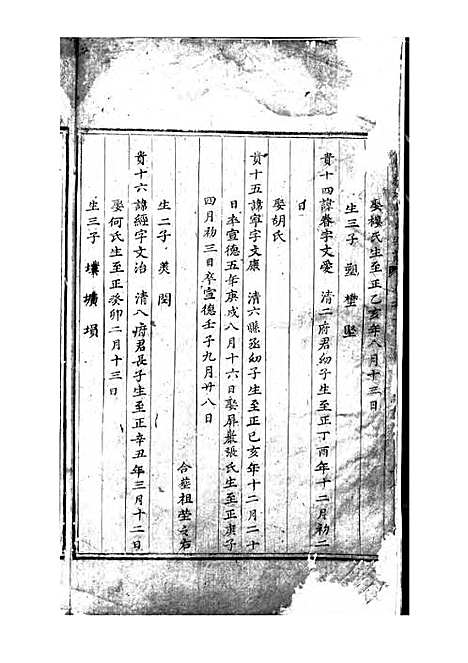 娶樓氏生至正乙亥年八月十三日
生三子 塑 堂 堅
貴十四諱春字文愛 清二府君幼子生至正丁酉年十二月初二
日
娶胡氏
貴十五諱寧字文康 清六縣丞幼子生至正己亥年十二月二十
日卒宣德五年庚戌八月十六日娶屏巖張氏生至正庚子
四月初三日卒宣德壬子九月廿八日
合塟祖塋之右
生二子 英 閏
貴十六諱經字文治 清八府君長子生至正辛丑年三月十二日
娶何氏生至正癸卯二月十三日
生三子 壤 壙 塤